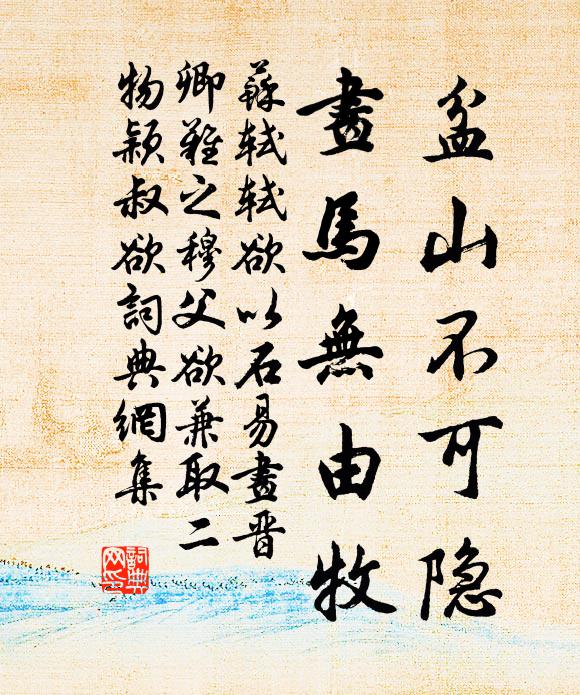 盆山不可隐
畫馬無由牧
蘇轼轼欲以石易畫晋
卿難之穆父欲兼取二
物颖叔欲詞典網集